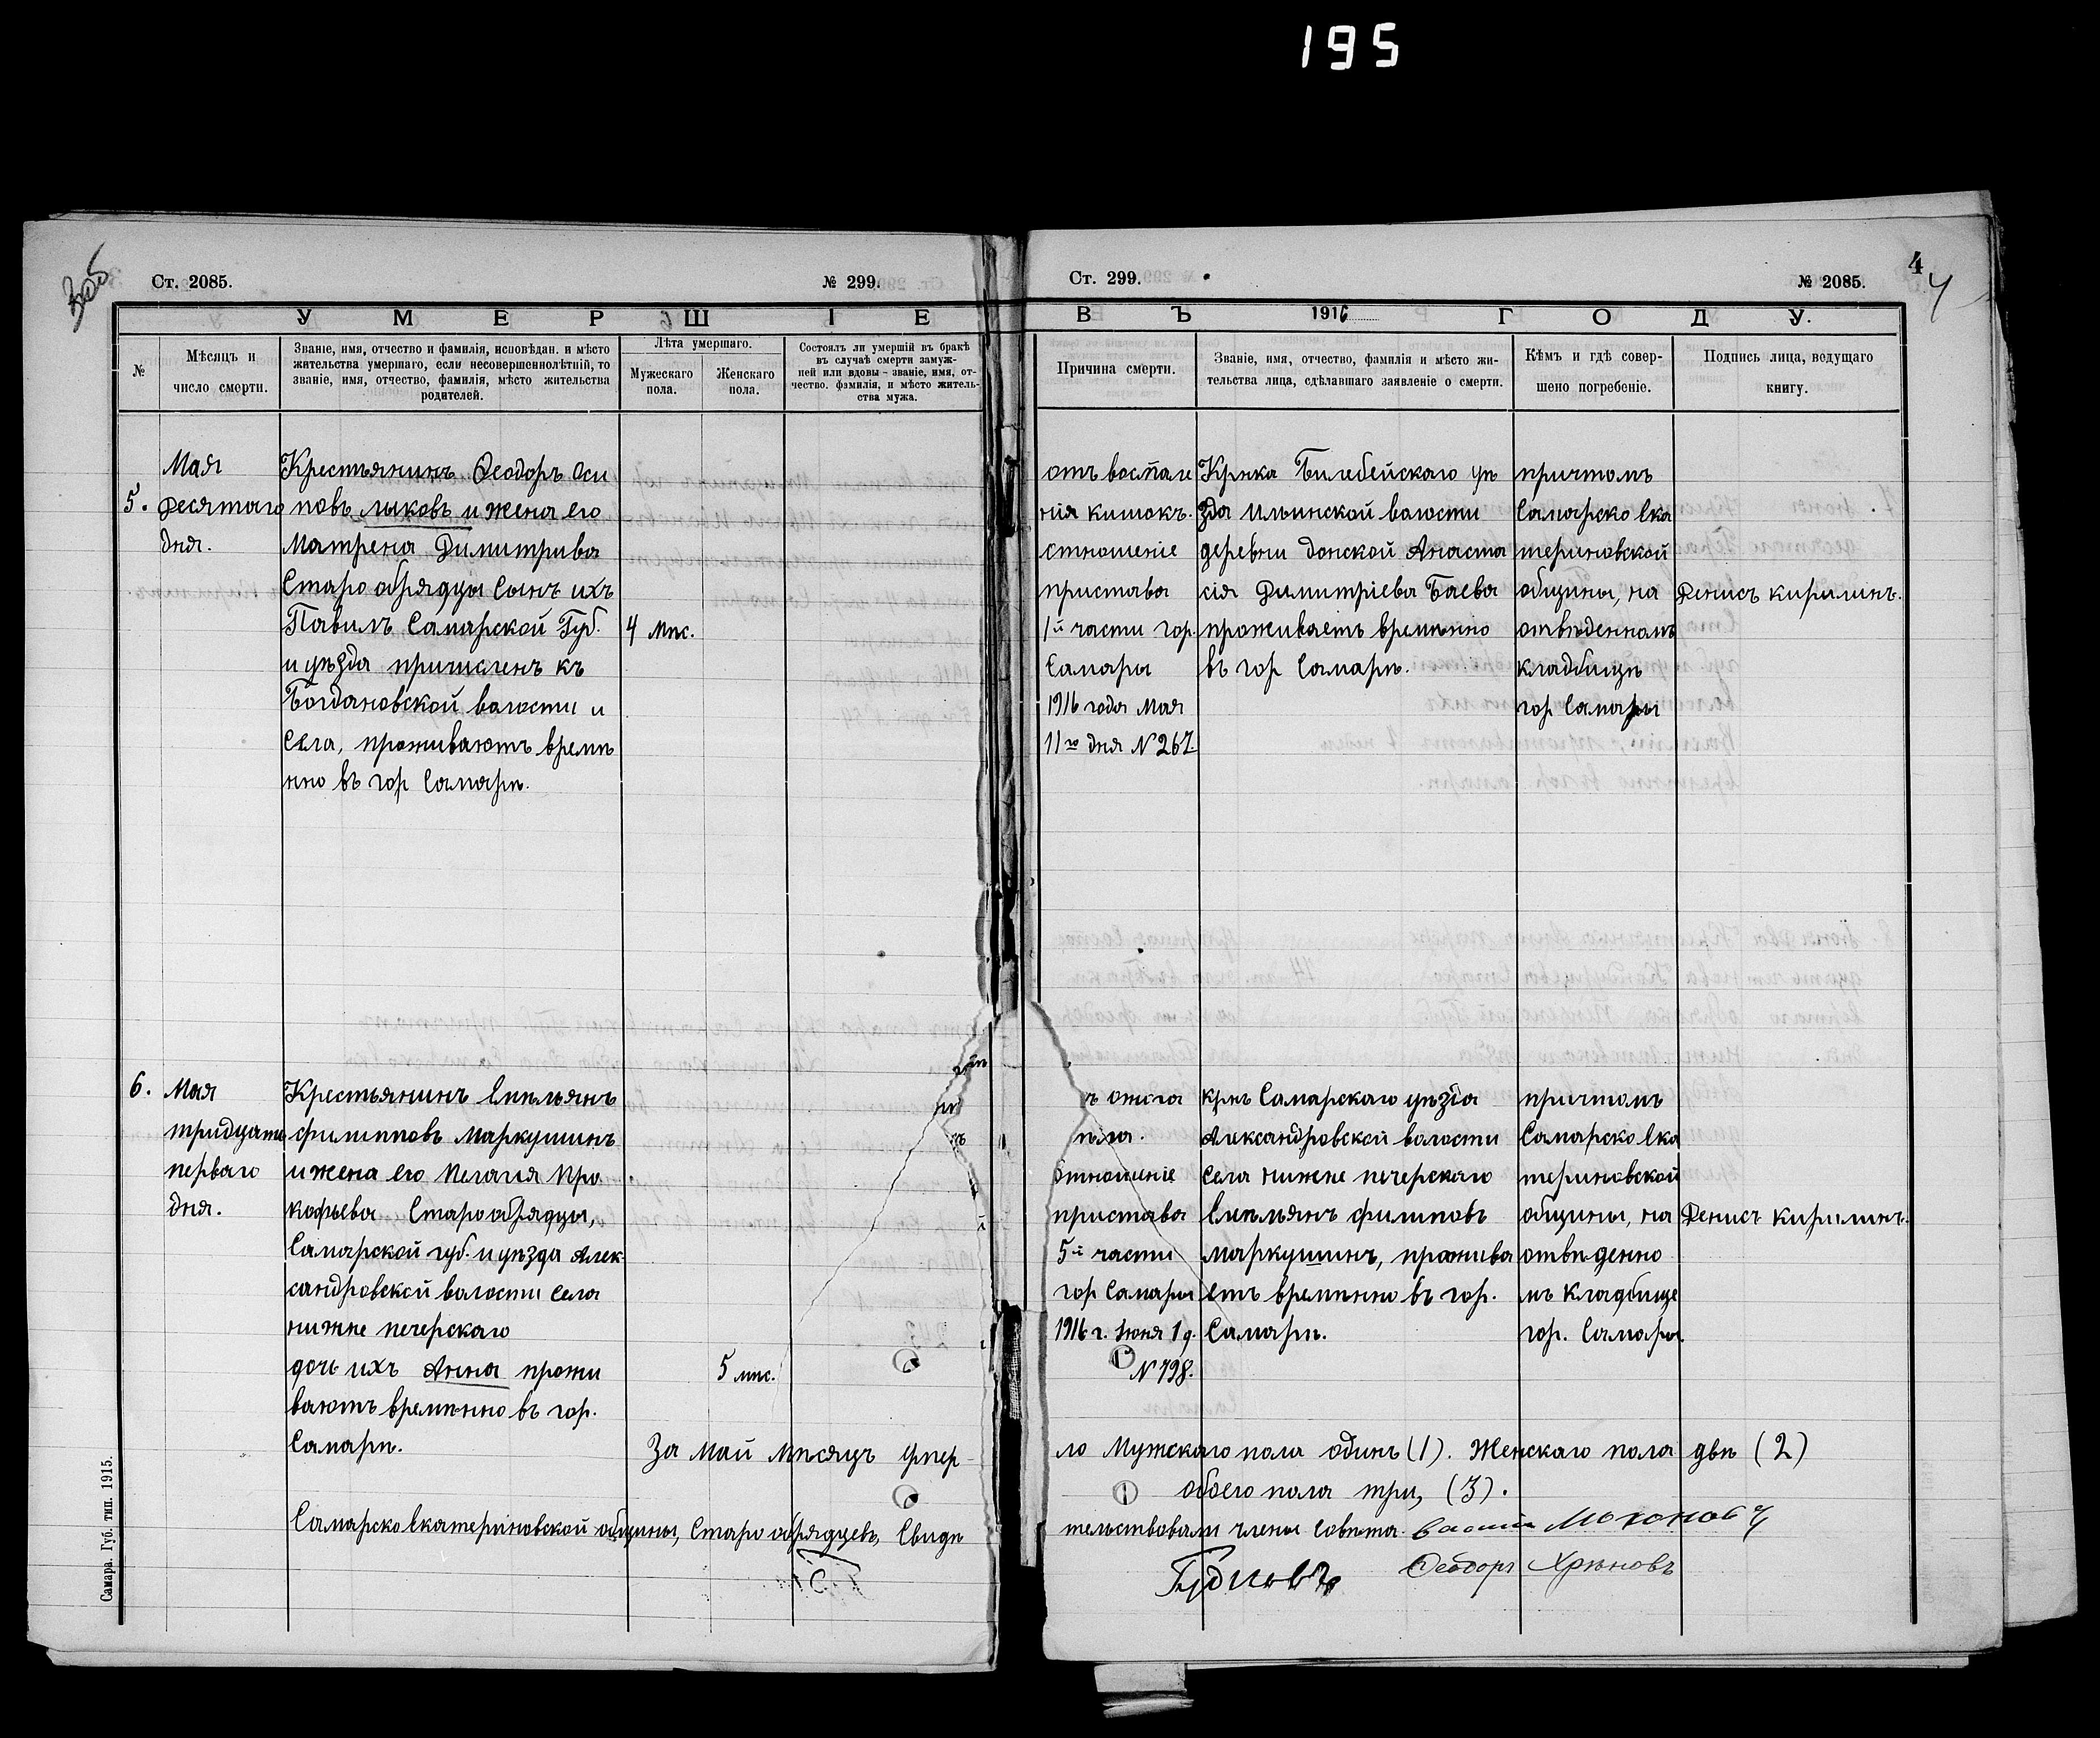 195
305
Ст. 2085.
№ 299.
Ст. 299.
№ 2085.
4
4
УМЕРШІЕ
ВЪ 1916 ГОДУ.
№
Мѣсяцъ и
число смерти.
Званіе, имя, отчество и фамилія, исповѣдан. и мѣсто
жительства умершаго, если несовершеннолѣтній, то
званіе, имя, отчество, фамилія, мѣсто жительства
родителей.
Лѣта умершаго.
Мужескаго
пола.
Женскаго
пола.
Состоялъ ли умершій въ бракѣ
въ случаѣ смерти замуж-
ней или вдовы – званіе, имя, от-
чество. фамилія, и мѣсто житель-
ства мужа.
Причина смерти.
Званіе, имя, отчество, фамилія и мѣсто жи-
тельства лица, сдѣлавшаго заявленіе о смерти.
Кѣмъ и гдѣ совер-
шено погребеніе.
Подпись лица, ведущаго
книгу.
5.
Мая
десятаго
дня.
Крестьянинъ Ѳеодоръ Оси
повъ лыковъ и жена его
Матрена Димитрива
Старообрядцы Сынъ ихъ
Павилъ Самарской Губ.
и уѣзда причисленъ къ
Богдановской волости и
села, проживаютъ времѣ
нно въ гор Самарѣ.
4 мѣс.
отъ воспале
нія кишокъ.
отношеніе
пристава
1й части гор.
Самары
1916 года Мая
11го дня N 267
Крнка Билебейскаго уѣ
зда Ильинской волости
деревни донской Анаста
сія Димитріева Баева
проживаетъ времѣнно
въ гор Самарѣ.
притомъ
Самарско Ека
териновской
общины, на
отвѣденномъ
кладбищѣ
гор Самары
Денисъ кирилинъ.
6.
Мая
тридцать
перваго
дня.
Крестьянинъ Емѣльянъ
филипповъ Маркушинъ
и жена его Пелагия Про
кофьева Старообрядцы,
Самарской губ. и уѣзда Алек-
сандровской волости села
нижне печерскаго
дочь ихъ Анна прожи
ваютъ времѣнно въ гор.
Самарѣ.
5 мѣс.
ъ ожога
тѣла.
Отношеніе
пристава
5й части
гор Самары
1916 г. Июня 1 д.
N 798.
крнъ Самарскаго уѣзда
Александровской волости
села нижне печерскаго
Емѣльянъ филиповъ
маркушинъ, прожива
етъ времѣнно въ гор.
Самарѣ.
притомъ
Самарско Ека
териновской
общины, на
отвѣденно
мъ кладбище
гор. Самары.
Денисъ кирилинъ.
За май мѣсяцъ умер-
ло Мужскаго пола одинъ (1). Женскаго пола двѣ (2)
обоего пола три, (3).
Самарско Екатериновской общины, Старообрядцевъ, Свидѣ
тельствовали члены Совѣта.
Ѳеодоръ Хрѣновъ
Самара. Губ. тип. 1915.